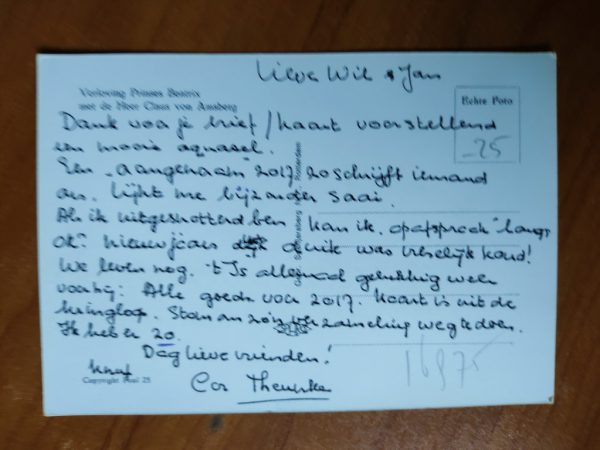 Lieve Wil + Jan
Verloving Prinses Beatrix
met de Heer Claus von Amsberg
Echte Foto
-25
Dank voor je brief/kaart voorstellend
een mooie aquarel.
Een "aangenaam" 2017 zo schrijft iemand
ons. Lijkt me bijzonder saai.
Als ik uitgesnotterd ben kan ik "op afspraak" langs
ok? Nieuwjaars duik was vreselijk koud!
We leven nog. 't Is allemaal gelukkig weer
voorbij. Alle goeds voor 2017. Kaart is uit de
kringloop. Stom om zo'n verzameling weg te doen.
Ik heb er 20.
Dag lieve vrienden!
knap
Copyright
25
Cor
16975
Rotterdam